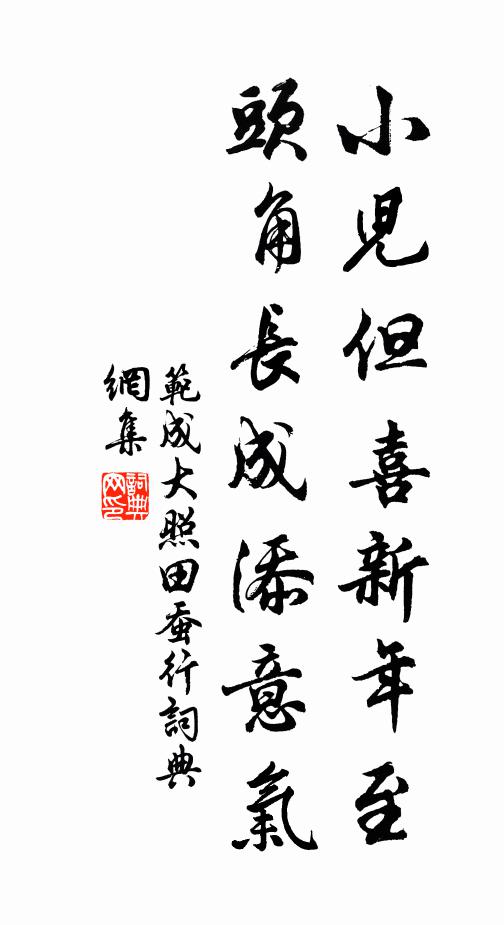 小兒但喜新年至
頭角長成添意氣
範成大照田蚕行詞典
網集
詞典
网印